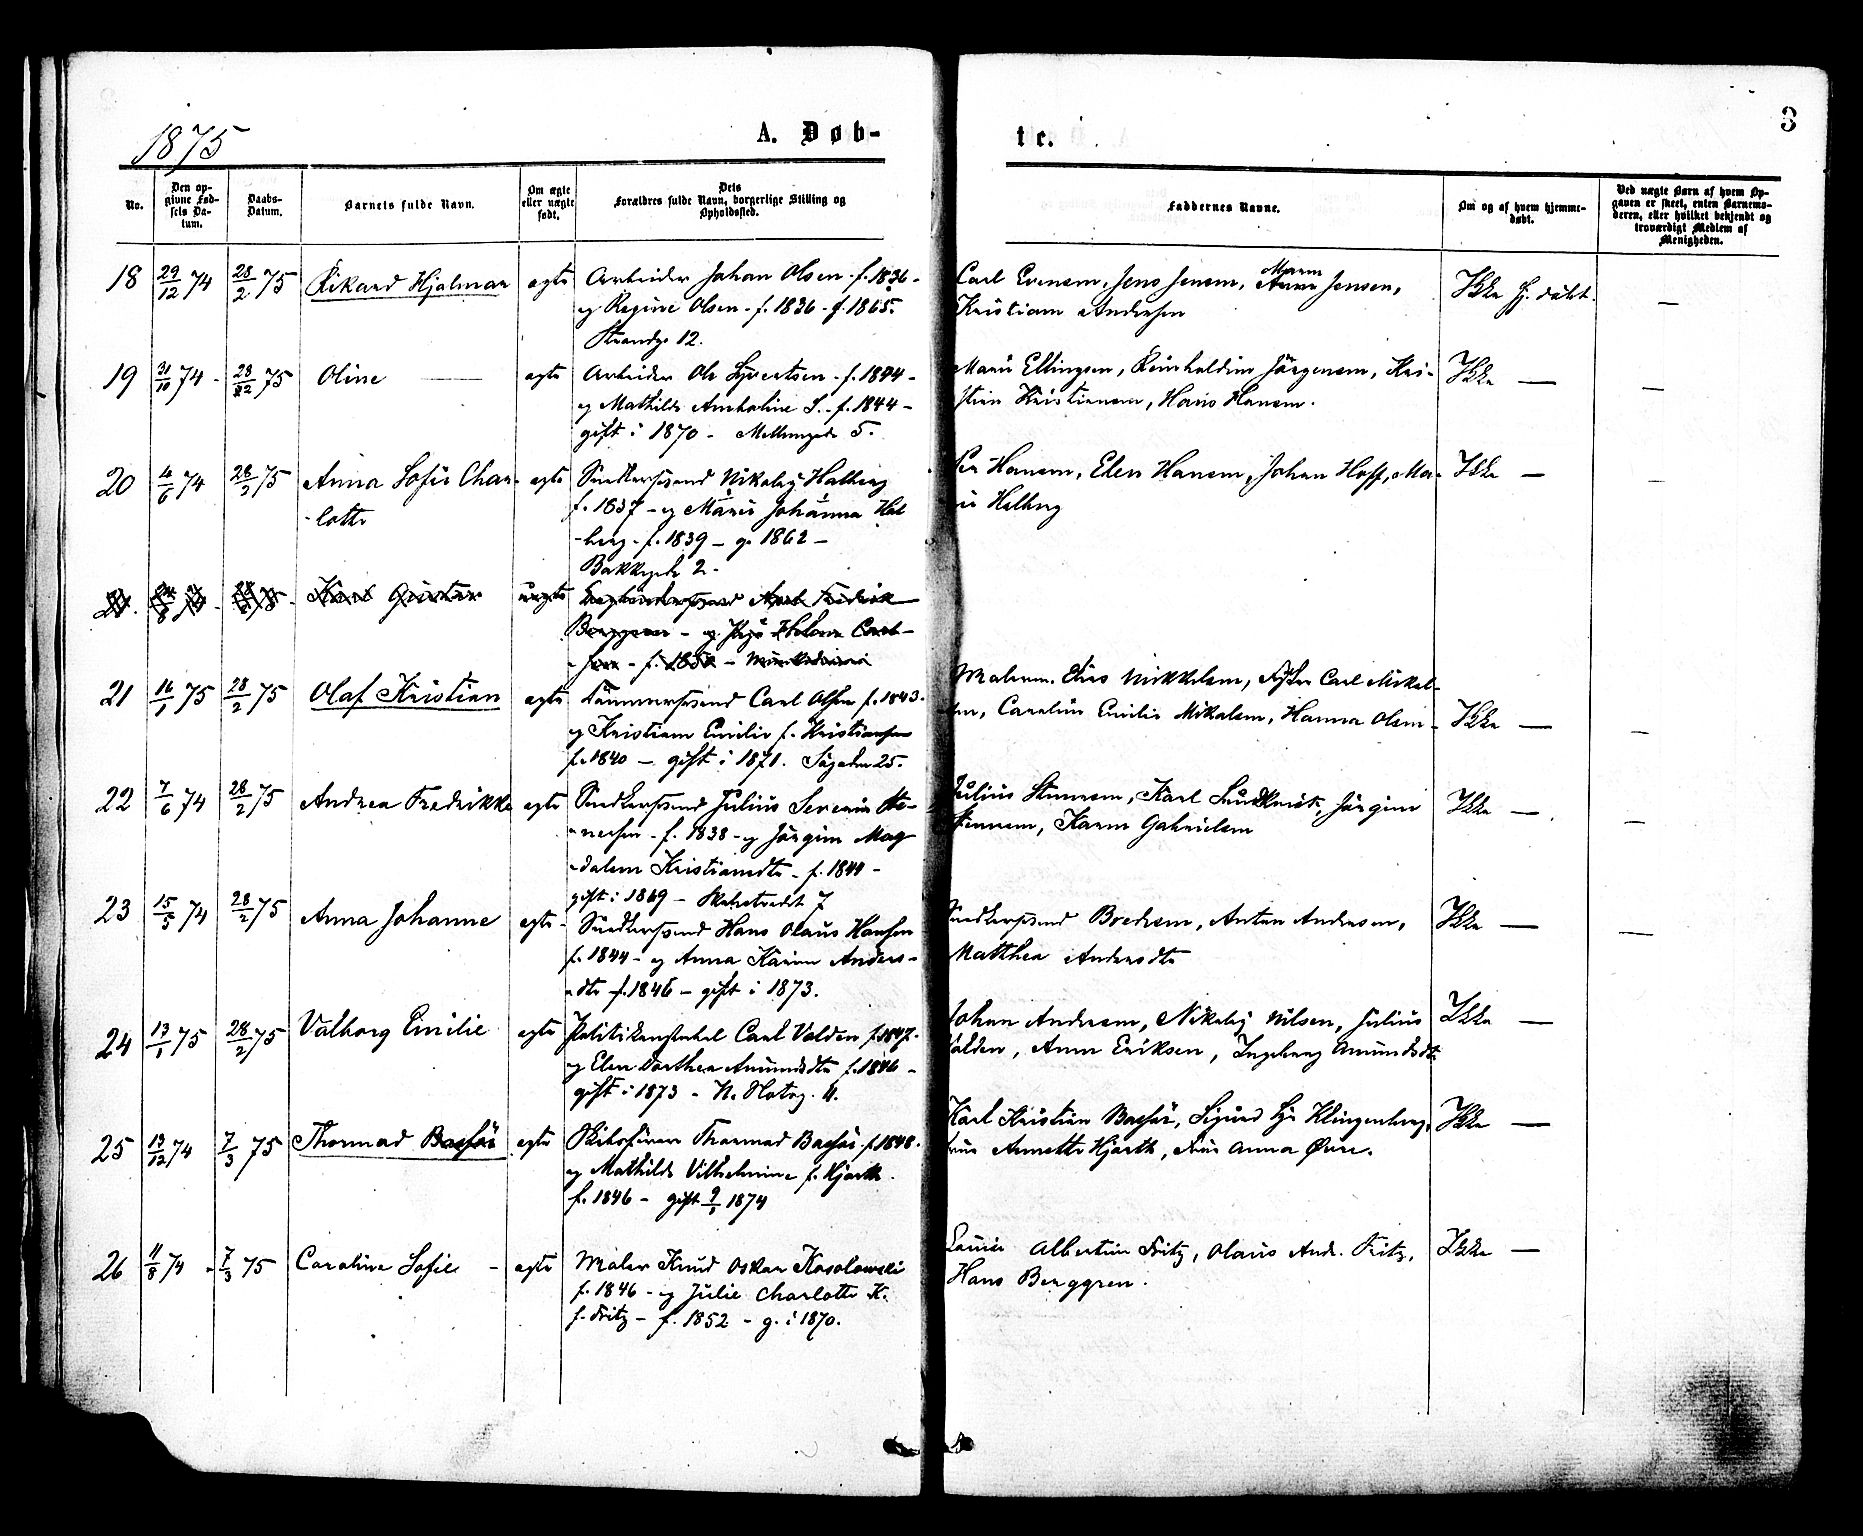 1875
A. Døb-
te.
3
No.
Den op-
givne Fød-
sels Da-
tum.
Daabs-
Datum.
Barnets fulde Navn.
Om ægte
eller uægte
født.
Dets
Forældres fulde Navn, borgerlige Stilling og
Opholdssted.
Faddernes Navne.
Om og af hvem hjemme-
døbt.
Ved uægte Børn af hvem Op-
gaven er skeet, enten Barnemo-
deren, eller hvilket bekjendt og
troværdigt Medlem af
Menigheden.
18 29/12 74 28/2 75 Rikard Hjalmar egte Arbeider Johan Olsen - f. 1836 -
og Regine Olsen - f. 1836 - g. 1865.
Strandg. 12.
Carl Evensen, Jens Jensen, Maren Jensen,
Kristian Andersen
Ikke hj. døbt. —
19 31/10 74 - 28/2 75 Oline — egte Arbeider Ole Syvertsen - f. 1844 -
og Mathilde Amholine S. - f. 1844 -
gift i 1870 - Mellemgade 5.
Marie Ellingsen, Reinholdine Jørgensen, Kri-
stian Kristiansen, Hans Hansen.
Ikke — —
20 4/6 74 28/2 75 Anna Sofie Char-
-lotte
egte Snedkersvend Nikolai Halberg
f. 1837 - og Marie Johanna Hal
-berg - f. 1839 - g. 1862 -
Bakkegade 2.
Hansen, Elen Hansen, Johan Hoff, Ma-
rie Halberg
Ikke — —
uægte
Fredrik
21 16/1 75 28/2 75 Olaf Kristian egte Tømmersvend Carl Olsen f. 1843.
og Kristiane Emilie f. Kristiansen
f. 1840 - gift i 1871. Søgaden 25.
Malerm. Elias Mikkelsen, Carl Mikal-
sen, Caroline Emilie Mikalsen, Hanna Olsen -
Ikke — —
22 7/6 74 28/2 75 Andrea Fredrikke egte Snedkersvend Julius Severin Ste-
-nersen - f. 1838 - og Jørgine Mag
-dalene Kristiansdtr - f. 1844 -
gift i 1869 - 7
Julius Stenersen, Karl Lundkvist, Jørgine
Stenersen, Karen Gabrielsen
Ikke — —
23 15/5 74 28/2 75 Anna Johanne egte - Snedkersvend Hans Olaus Hansen
f. 1844 - og Anna Karine Anders-
-dtr f. 1846 - gift i 1873.
Snedkersvend Bredesen, Anton Andresen,
Matthea Andersdtr
Ikke — —
24 13/1 75 28/2 75 Valborg Emilie egte Politikonstabel Carl Valden f. 1847.
og Elen Dorthea Amundsdtr f. 1846 -
gift i 1873 - N. 4.
Johan Andersen, Nikolaj Nilsen, Julius
Valden, Anne Eriksen, Ingeborg Amundsdtr
Ikke —
25 13/12 74 7/3 75 Thormod Bassøe egte Skibsfører Thormod Bassøe - f. 1848.
og Mathilde Vilhelmine f. Hjorth
f. 1846 - gift 9/1 1874
Karl Kristian Bassøe, Sigurd Klingenberg,
Frue Annette Hjorth, Frue Anna Øvre.
Ikke —
26 11/8 74 - 7/3 75 Caroline Sofie - egte Maler Knud Oskar Kosolowski
f. 1846 - og Julie Charlotte K.
f. Fritz - f. 1852 - g. i 1870.
Louise Albertine Fritz, Olaus Andr. Fritz,
Hans Berggren.
Ikke —